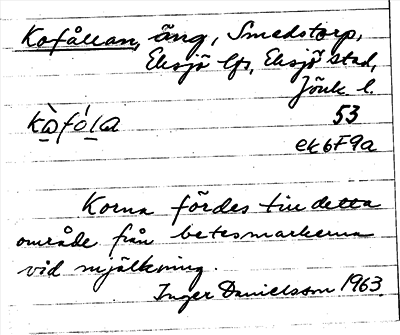 Kofållan, äng, Smedstorp,
Eksjö lfs, Eksjö stad,
Jönk l.
53
kò̱fó́ḻa
ek 6F9a
Korna fördes till detta
område från betesmarkerna
vid mjölkning.
Inger Danielsson 1963.